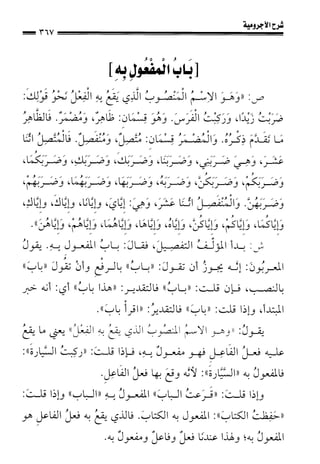 شرح الآجرومية
٣٦٧
[بَابُ الْمَفْعُولِ بِهِ]
ص: «وَهُوَ الاِسْمُ الْمَنْصُوبُ الَّذِي يَقَعُ بِهِ الْفِعْلُ نَحْوُ قَوْلِكَ:
ضَرَبْتُ زَيْدًا، وَرَكِبْتُ الْفَرَسَ. وَهُوَ قِسْمَانِ: ظَاهِرٌ، وَمُضْمَرٌ. فَالظَّاهِرُ
مَا تَقَدَّمَ ذِكْرُهُ. وَالْمُضْمَرُ قِسْمَانِ: مُتَّصِلٌ، وَمُنْفَصِلٌ. فَالْمُتَّصِلُ اثْنَا
عَشَرَ، وَهِيَ ضَرَبَنِي، وَضَرَبَنَا، وَضَرَبَكَ، وَضَرَبَكِ، وَضَرَبَكُمَا،
وَضَرَبَكُمْ، وَضَرَبَكُنَّ، وَضَرَبَهُ، وَضَرَبَهَا، وَضَرَبَهُمَا، وَضَرَبَهُمْ،
وَضَرَبَهُنَّ. وَالْمُنْفَصِلُ اثْنَا عَشَرَ، وَهِيَ: إِيَّايَ، وَإِيَّانَا، وَإِيَّاكَ، وَإِيَّاكِ،
وَإِيَّاكُمَا، وَإِيَّاكُمْ، وَإِيَّاكُنَّ، وَإِيَّاهُ، وَإِيَّاهَا، وَإِيَّاهُمَا، وَإِيَّاهُمْ، وَإِيَّاهُنَّ».
ش: بدأ المؤلِّفُ التفصيلَ، فقال: بابُ المفعولِ بهِ. يقولُ
المعرِبُونَ: إنَّه يجوزُ أن تقولَ: «بابُ» بالرفعِ وأنْ تقُولَ «بابَ»
بالنصبِ، فإن قلت: «بابُ» فالتقديرُ: «هذا بابُ» أي: أنه خبر
المبتدأ، وإذا قلت: «بابَ» فالتقديرُ: «اقرأْ بابَ».
يقولُ: «وهو الاسمُ المنصوبُ الذي يقعُ به الفعلُ» يعني ما يقعُ
عليه فعلُ الفاعلِ فهو مفعولٌ به، فإذا قلتَ: «ركبتُ السَّيارةَ»:
فالمفعولُ به «السَّيَّارةَ»؛ لأنَّه وقع بها فعلُ الفاعلِ.
وإذا قلتَ: «قرعتُ البابَ» المفعولُ به «الباب» وإذا قلتَ:
«حفظتُ الكتابَ»: المفعول به الكتابَ. فالذي يقعُ به فعلُ الفاعلِ هو
المفعولُ به؛ ولهذا عندَنا فعلٌ وفاعلٌ ومفعولٌ به.